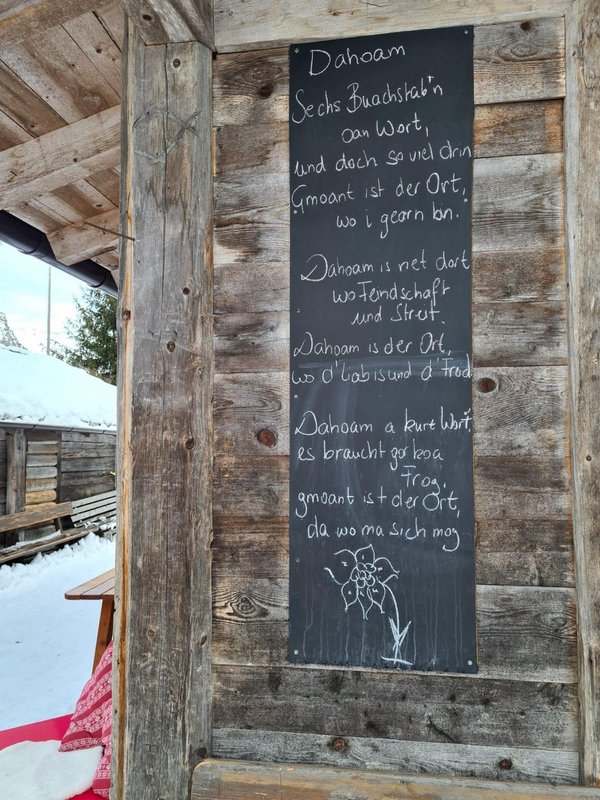 Dahoam
Sechs Buachstab'n
oan Wort,
und doch so viel drin
Gmoant ist der Ort,
wo i gearn bin.
Dahoam is net dort
wo Feindschaft
und Streit.
Dahoam is der Ort,
wo d'liab is und d'Frod
Dahoam a kurz Wort,
es braucht gor koa
Frog,
gmoant ist der Ort,
da wo ma sich mog